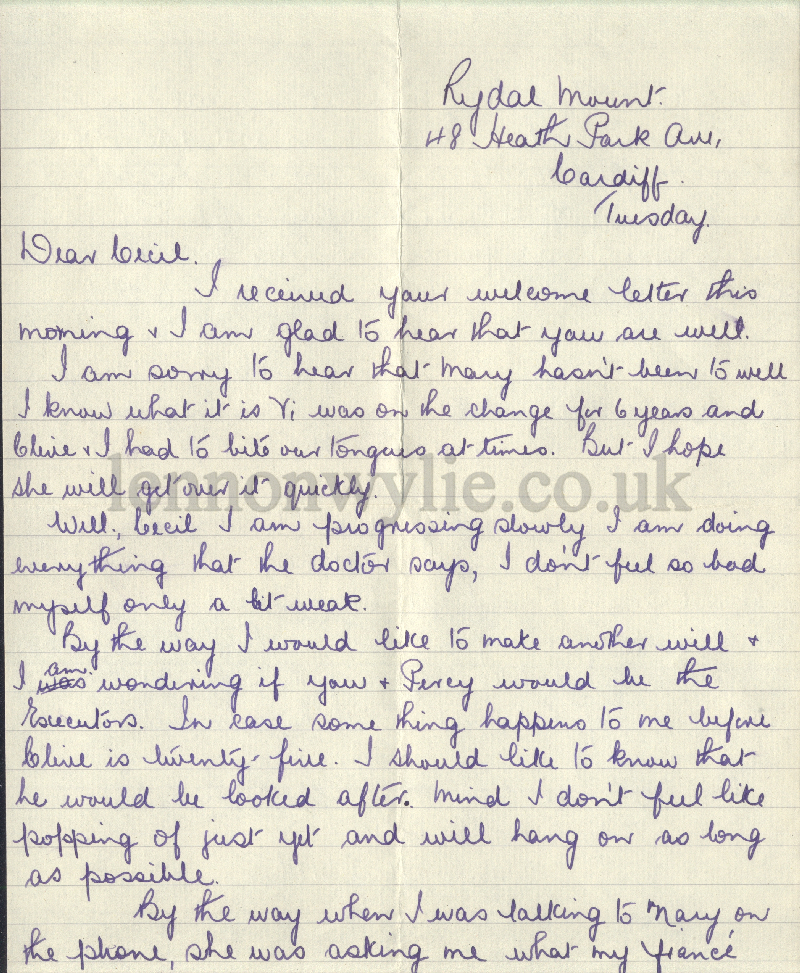 Rydal Mount.
48 Heath Park Ave,
Cardiff.
Tuesday.
Dear Cecil.
I received your welcome letter this
morning & I am glad to hear that you are well.
I am sorry to hear that Mary hasn't been to well
I know what it is Vi was on the change for 6 years and
Clive & I had to bite our tongues at times. But I hope
she will get over it quickly.
lennonwylie.co.uk
Well, Cecil I am progressing slowly I am doing
everything that the doctor says, I don't feel so bad
myself only a bit weak.
By the way I would like to make another will &
I was am wondering if you & Percy would be the
Executors. In case some thing happens to me before
Clive is twenty-five. I should like to know that
he would be looked after. Mind I don't feel like
popping of just yet and will hang on as long
as possible.
By the way when I was talking to Mary on
the phone, she was asking me what my fiancé